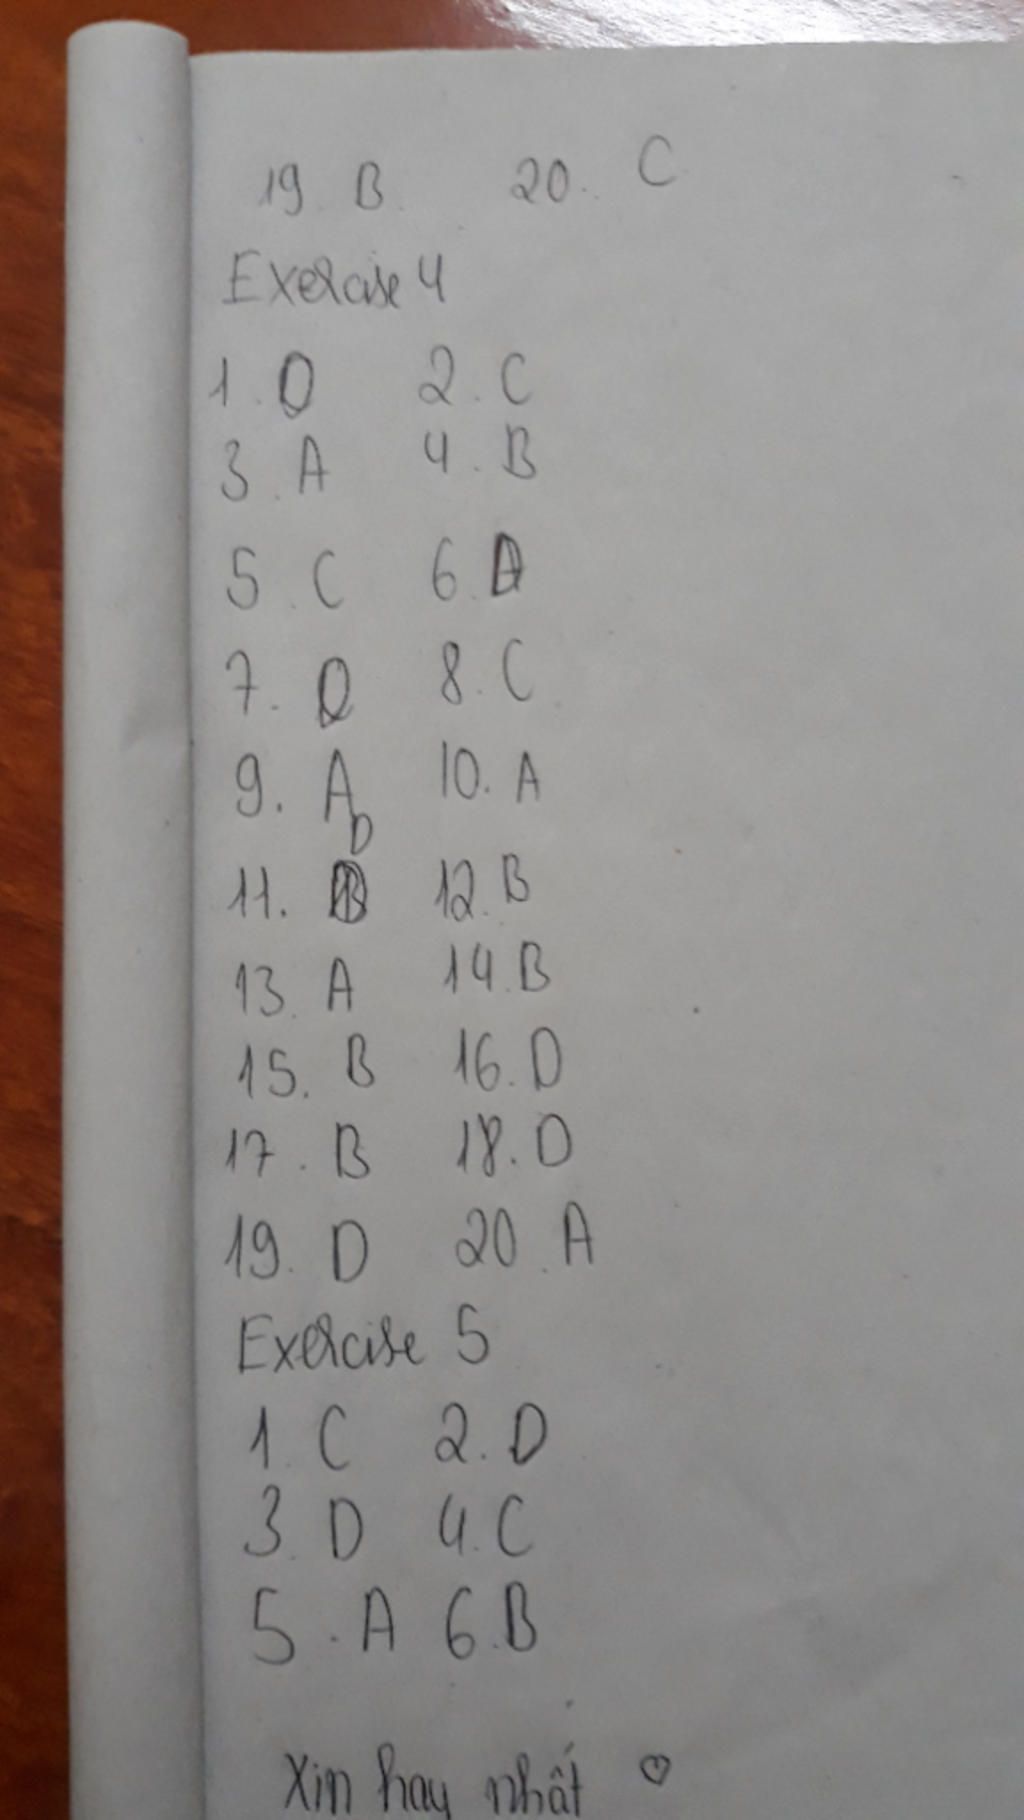 19. B. 20. C.
Exercise 4
1. D 2. C
3. A 4. B
5. C 6.
7. D 8. C
9. A 10. A
11. D 12. B
13. A 14. B
15. B 16. D
17. B 18. D
19. D 20. A
Exercise 5
1. C 2. D
3. D 4. C
5. A 6. B
Xin hay nhất ♡